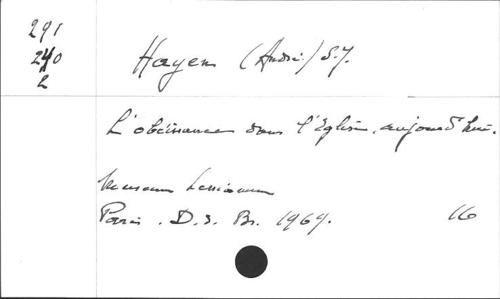 291
240
L
Hayen (André) S.J.
L'obéissance dans l'Eglise, aujourd'hui.
Museum Lessianum
Paris. D.d. Br. 1969.
16